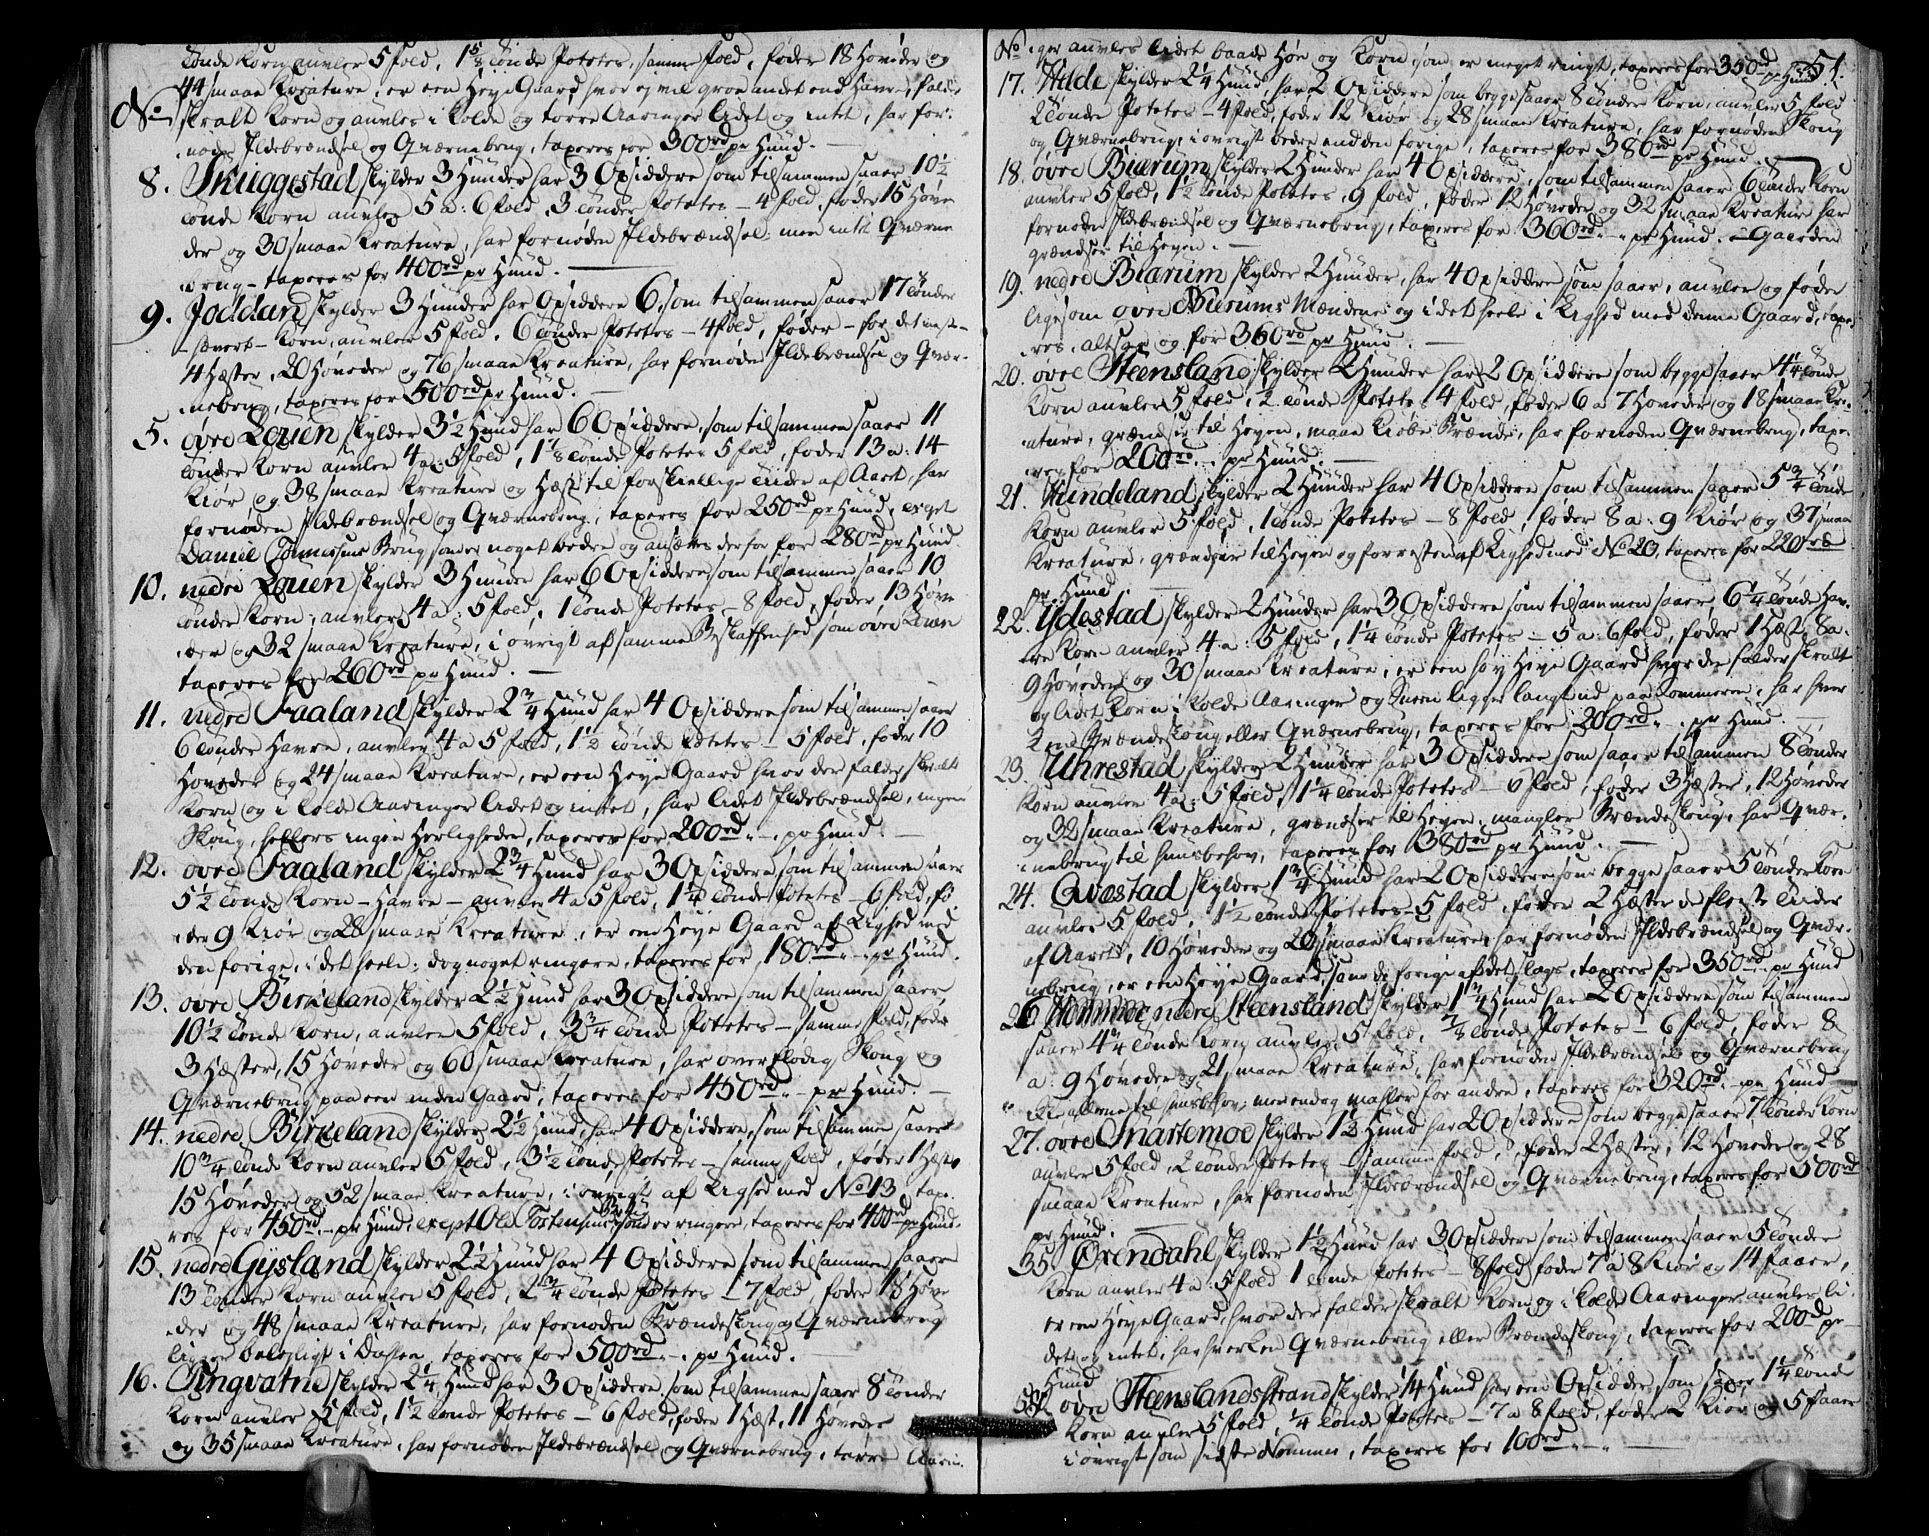 tønde Korn auvler 5 fold, 1 5/8 tønde Potetes, samme fold, føder 18 Høveder og
44 smaae Kreature, er een Høye Gaard hvor ej vil groe andet end Havre, falder
No skralt Korn og auvles i kolde og tørre Aaringer lidet og intet, har for-
nøden Ildebrændsel og Qværnebrug, taxeres for 300rd pr Hund.
8. Skuggestad skylder 3 Hunder har 3 Opsiddere som tilsammen saaer 10½
tønde Korn auvler 5 a: 6 fold, 3 tønder Potetes – 4 fold, føder 15 Høve
der og 30 smaae Kreature, har fornøden Ildebrændsel men intet Qværne
brug – taxeres for 400rd pr Hund.
9. Joddan skylder 3 Hunder har Opsiddere 6, som tilsammen saaer 17 tønder
Korn, auvler 5 fold, 6 tønder Potetes – 4 fold, føder – for det meste –
4 Hæster, 20 Høveder og 76 smaae Kreature, har fornøden Ildebrændsel og Qvær-
nebrug, taxeres for 500rd pr Hund.
5. øvre Løuen skylder 3½ Hund har 6 Opsiddere, som tilsammen saaer 11
tønder Korn auvler 4 a: 5 fold, 1 1/8 tønde Potetes 5 fold, føder 13 a: 14
Kiør og 38 smaae Kreature og Hæst til forskiellige tiider af Aaret, har
fornøden Ildebrændsel og Qværnebrug, taxeres for 250rd pr Hund, except
Daniel Tønnessens Brug som er noget bedre og ansættes derfor for 280rd pr Hund
10. nedre Løuen skylder 3 Hunder har 6 Opsiddere, som tilsammen saaer 10
tønder Korn, auvler 4 a: 5 fold, 1 tønde Potetes – 8 fold, føder 13 Høve
der og 32 smaae Kreature, i øvrigt af samme Beskaffenhed som øvre Løuen
taxeres for 260rd pr Hund.
11. nedre Faaland skylder 2¾ Hund har 4 Opsiddere som tilsammen saaer
6 tønder Havre, auvler 4 a 5 fold, 1½ tønde Potetes – 5 fold, føder 10
Høveder og 24 smaae Kreature, er een Høye Gaard hvor der falder skralt
Korn og i kolde Aaringer lidet og intet, har lidet Ildebrændsel, ingen
Skoug, hellers ingen Herligheder, taxeres for 200rd pr Hund.
12. øvre Faaland skylder 2¾ Hund har 3 Opsiddere som tilsammen saaer
5½ tønde Korn – Havre – auvler 4 a 5 fold, 1¼ tønde Potetes – 6 fold, fø-
der 9 Kiør og 28 smaae Kreature, er en Høye Gaard af Lighed med
den forige, i det heele; dog noget ringere, taxeres for 180rd pr Hund.
13. øvre Birkeland skylder 2½ Hund har 3 Opsiddere som tilsammen saaer
10½ tønde Korn, auvler 5 fold, 3¾ tønde Potetes – samme fold, føder
3 Hæster, 15 Høveder og 60 smaae Kreature, har overflødig Skoug og
Qværnebrug paa een anden Gaard, taxeres for 450rd pr Hund.
14. nedre Birkeland skylder 2½ Hund, har 4 Opsiddere, som tilsammen saaer
10¾ tønde Korn auvler 5 fold, 3½ tønde Potetes – samme fold, føder 1 Hæst
15 Høveder og 52 smaae Kreature, i øvrigt af Lighed med No 13 taxe-
res for 450rd pr Hund, exept Ole Tostensens som er ringere, taxeres for 400rd pr Hund.
15. nedre Gysland skylder 2½ Hund har 4 Opsiddere som tilsammen saaer
13 tønder Korn auvler 5 fold, 2¾ tønde Potetes – 7 fold, føder 18 Høve
der og 48 smaae Kreature, har fornøden Brændeskoug og Qværnebrug
ligger beleyligt i Dahlen, taxeres for 500rd pr Hund.
16. Tingvatne skylder 2¼ Hund har 3 Opsiddere, som tilsammen saaer 8 tønder
Korn auvler 5 fold, 1½ tønde Potetes – 6 fold, føder 1 Hæst, 11 Høveder
og 35 smaae Kreature, har fornøden Ildebrændsel og Qværnebrug, tørre Aarin-
51.
No ger auvles lidet baade Høe og Korn, som er meget ringt, taxeres for 350rd pr Hund
17. Hadde skylder 2¼ Hund, har 2 Opsiddere som begge saaer 8 tønder Korn, auvler 5 fold
2 tønder Potetes – 4 fold, føder 12 Kiør og 28 smaae Kreature, har fornøden Skoug
og Qværnebrug, i øvrigt bedre end den forige, taxeres for 380rd pr Hund.
18. øvre Biærum skylder 2 Hunder har 4 Opsiddere, som tilsammen saaer 6 tønder Korn
auvler 5 fold, 1½ tønde Potetes, 9 fold, føder 12 Høveder og 32 smaae Kreature har
fornøden Ildebrændsel og Qværnebrug, taxeres for 360rd pr Hund. – Gaarden
grændser til Heyen. –
19. nedre Biærum skylder 2 Hunder, har 4 Opsiddere som saaer, auvler og føder
ligesom øvre Biærums Mændene og i det heele i Lighed med denne Gaard, taxe-
res, altsaa og for 360rd pr Hund.
20. øvre Steensland skylder 2 Hunder har 2 Opsiddere som begge saaer 4¼ tønde
Korn auvler 5 fold, ½ tønde Potetes 4 fold, føder 6 a 7 Høveder og 18 smaae Kre-
ature, grændser til Heyen, maae kiøbe Brænde, har fornøden Qværnebrug, taxe-
res for 200rd pr Hund.
21. Hundeland skylder 2 Hunder har 4 Opsiddere som tilsammen saaer 5¾ tønde
Korn auvler 5 fold, 1 tønde Potetes – 8 fold, føder 8 a: 9 Kiør og 37 smaae
Kreature, grændser til Heyen og forresten af Lighed med No 20, taxeres for 220rd
pr Hund
22. Ydestad skylder 2 Hunder har 3 Opsiddere som tilsammen saaer 6¼ tønde Hav-
re Korn auvler 4 a: 5 fold, 1¼ tønde Potetes – 5 a: 6 fold, føder 1 Hæst 8 a:
9 Høveder og 30 smaae Kreature, er een høy Heye Gaard hvor der falder skralt
og lidet Korn i kolde Aaringer og Sneen ligger langt ud paa Sommeren, har hver
ken Brændeskoug eller Qværnebrug, taxeres for 200rd pr Hund.
23. Uhrestad skylder 2 Hunder har 3 Opsiddere som saaer tilsammen 8 tønder
Korn auvler 4 a: 5 fold, 1¼ tønde Potetes – 6 fold, føder 3 Hæster, 12 Høveder
og 32 smaae Kreature, grændser til Heyen, mangler Brændeskoug, har Qvær-
nebrug til huusbehov, taxeres for 380rd pr Hund.
24. Qvæstad skylder 1¾ Hund har 2 Opsiddere som begge saaer 5 tønder Korn
auvler 5 fold, 1½ tønde Potetes – 5 fold, føder 2 Hæster de fleeste tiider
af Aaret, 10 Høveder og 20 smaae Kreature, har fornøden Ildebrændsel og Qvær-
nebrug, er een Høye Gaard, som de forige af det slags, taxeres for 350rd pr Hund
26 nedre Steensland skylder 1¾ Hund har 2 Opsiddere som tilsammen
saaer 4¼ tønde Korn auvler 5 fold, 7/8 tønde Potetes – 6 fold, føder 8
a: 9 Høveder og 21 smaae Kreature, har fornøden Ildebrændsel og Qværnebrug
ikke allene til huusbehov, men endog mahler for andre, taxeres for 320rd pr Hund
27. øvre Snartemoe skylder 1½ Hund har 2 Opsiddere som begge saaer 7 tønder Korn
auvler 5 fold, 2 tønder Potetes – samme fold, føder 2 Hæster, 12 Høveder og 28
smaae Kreature, har fornøden Ildebrændsel og Qværnebrug, taxeres for 500rd
pr Hund.
35 Ørendahl skylder 1½ Hund har 3 Opsiddere som tilsammen saaer 5 tønder
Korn auvler 4 a: 5 fold 1 tønde Potetes – 8 fold, føder 7 a 8 Kiør og 14 faaer,
er een Høye Gaard, hvor der falder skralt Korn og i kolde Aaringer auvles li-
det og intet, har hverken Qværnebrug eller Brændeskoug, taxeres for 200rd pr
Hund
øvre Steenslandsstrand skylder ¼ Hund har een Opsidder som saaer 1¼ tønde
Korn auvler 5 fold, ¼ tønde Potetes – 7 a 8 fold, føder 2 Kiør og 5 faaer
i øvrigt som sidste Nommer, taxeres for 100rd